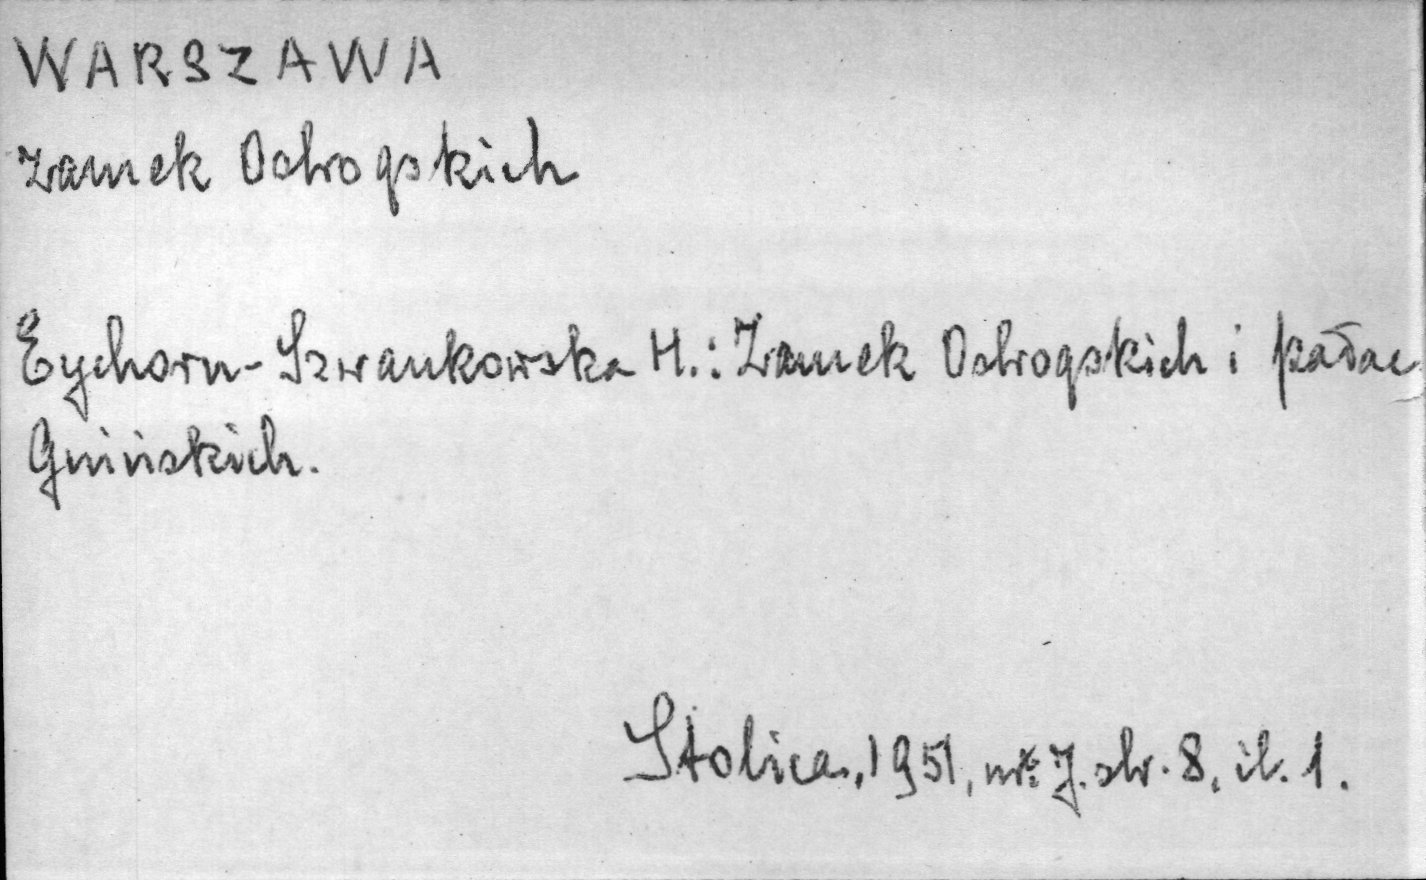 WARSZAWA
Zamek Ostrogskich
Eychorn-Szwankowska H.: Zamek Ostrogskich i pałac
Gnińskich.
Stolica, 1951, nr: 7. str. 8, il. 1.